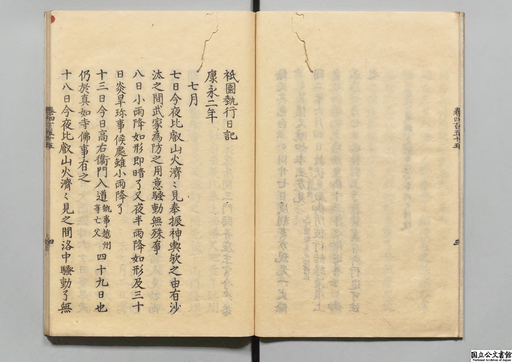 祇園執行日記
康永二年
七月
七日今夜比叡山火濟〻見奉振神輿欤之由有沙
汰之間武家為防之用意騒動無殊事
八日小雨降如形即晴了又夜半雨降如形及三十
日炎旱珍事候處雖小雨降了
十三日今日高右衛門入道 四十九日也
仍於真如寺佛事有之
十八日今夜比叡山火濟〻見之間洛中騒動了無
国立公文書館
National Archives of Japan